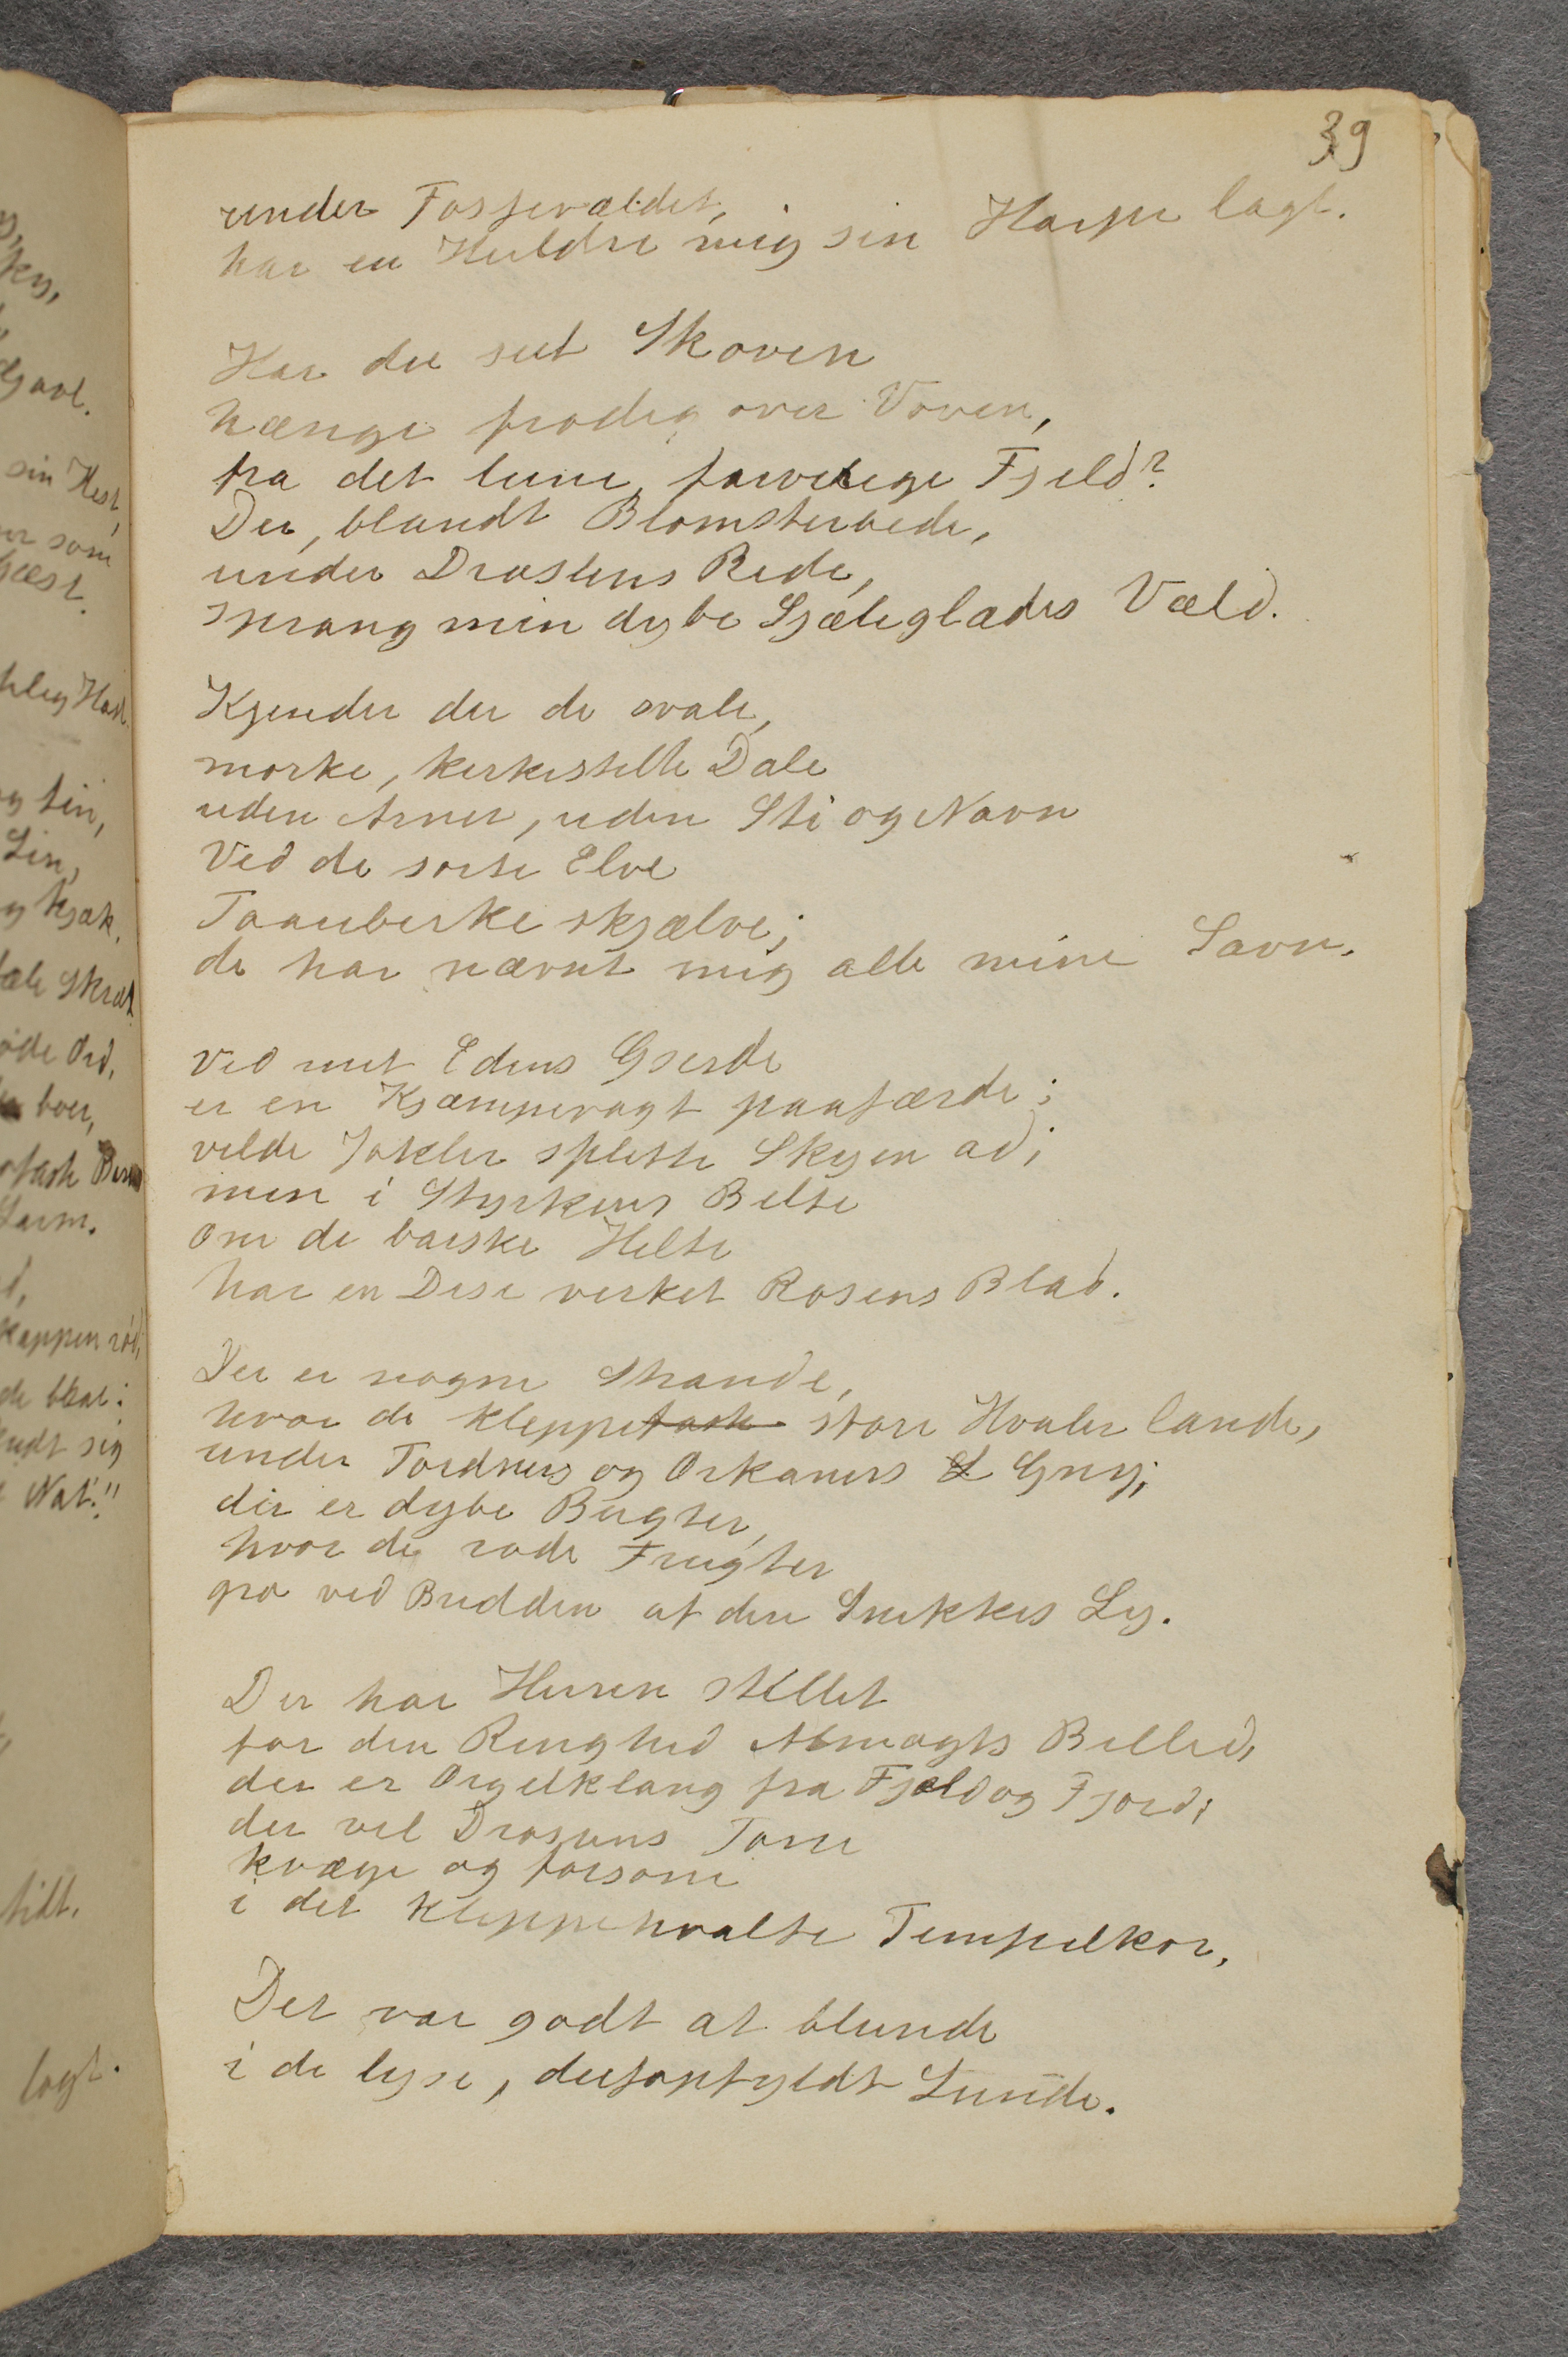 39
under Fossevældet,
har en Huldre mig sin Harpe lagt.
Har du seet Skoven
hænge frodig over Voven,
fra det lune, farvelige Fjeld?
Der, blandt Blomsterbede,
under Droslens Rede,
sprang min dybe Sjæleglædes Væld.
Kjender du de svale,
mørke, kirkestille Dale
uden Arner, uden Sti og Navn
Ved de sorte Elve
Taarebirke skjælve;
de har nævnt mig alle mine Savn.
Ved mit Edens Gjerde
er en Kjæmpevagt paafærde;
vilde Jøkler splitte Skyen ad;
men i Styrkens Belte
om de barske Helte
har en Dise virket Rosens Blad.
Der er nøgne Strande,
hvor de kleppefaste store Hvaler lande,
under Tordners og Orkaners Gny;
der er dybe Bugter,
hvor de røde Frugter
gro ved Bredden af den Snekkes Ly.
Der har Herren stillet
for din Ringhed Almagts Billed,
der er Orgelklang fra Fjeld og Fjord;
der vil Drosens Tone
kvæge og forsone
i det kleppehvalte Tempelkor.
Det var godt at blunde
i de lyse, duftopfyldt Lunde.
sin Hest,
som
Gæst.
og fin,
Lin,
Ord,
boer,
Larm.
Kappen rød,
sig
Nat!"
tidt.
lagt.